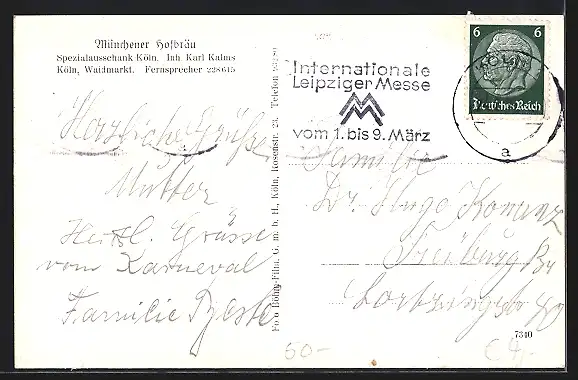 Münchener Hofbräu
Spezialausschank Köln. Inh Karl Kalms
Köln, Waidmarkt. Fernsprecher 228615
Herzliche Grüße
Mutter
Herzl. Grüsse
vom Karneval
Familie
G. m. b. H., Köln, Rosenstr. 23. Telefon
Internationale
Leipziger Messe
vom 1. bis 9. März
KÖLN
a
6 6
Deutsches Reich
Familie
Dr. Hugo
Freiburg Br
7340
50-